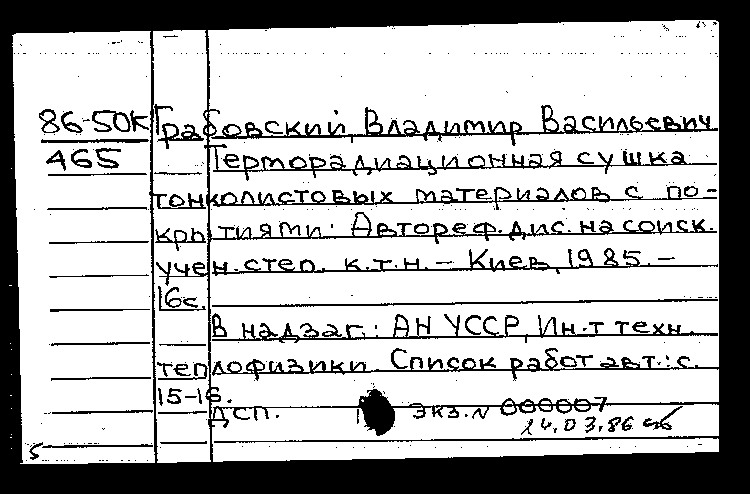 86-50К Грабовский, Владимир Васильевич
465 Терморадиационная сушка
тонколистовых материалов с по-
крытиями: Автореф. дис. на соиск.
учен. степ. к.т.н. – Киев, 1985. –
16с.
В надзаг.: АН УССР, Ин-т техн.
теплофизики. Список работ авт.: с.
15-16.
ДСП. экз. N 000007
24.03.86
5